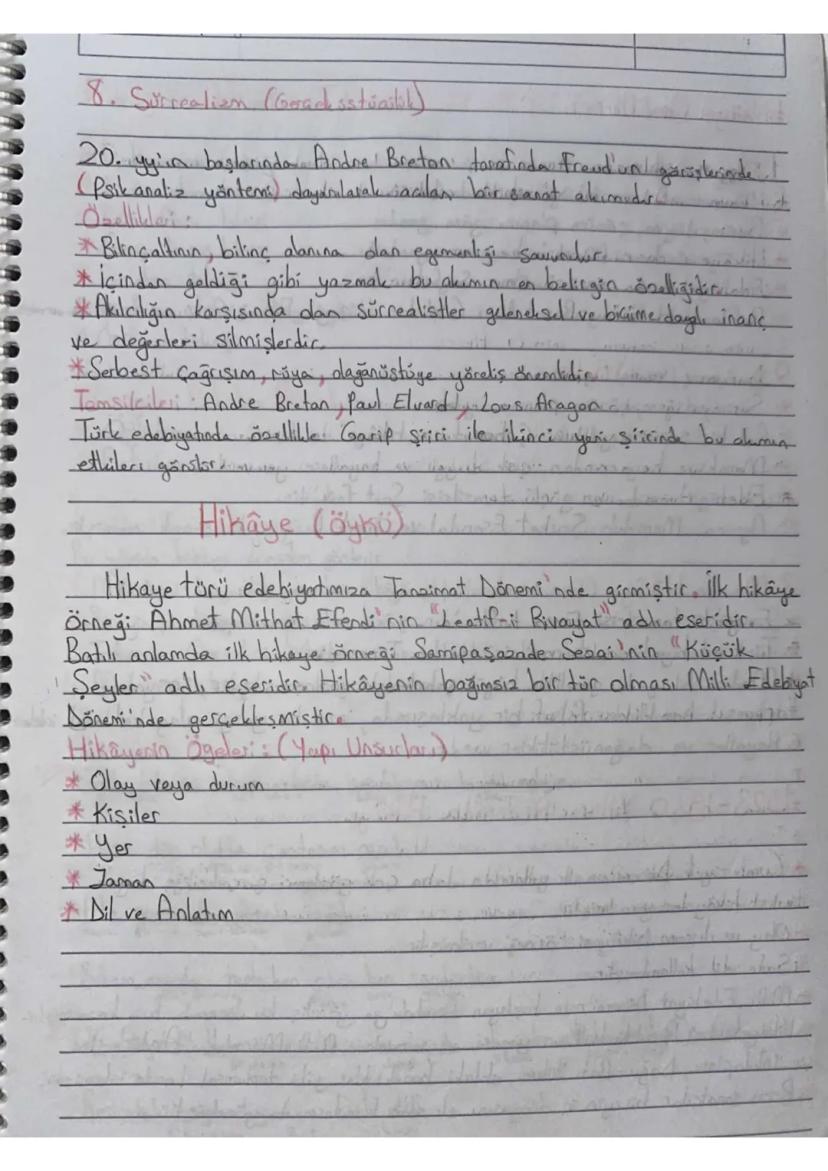 8. Sürrealizm (Gerçeküstücülük)
20. yy'ın başlarında Andre Breton tarafında Freud'un görüşlerinde
(Psikanaliz yöntemi) dayanılarak açılan bir sanat akımıdır
Özellikleri:
* Bilinçaltının, bilinç alanına olan egemenliği savunulur
* İçinden geldiği gibi yazmak bu akımın en belirgin özelliğidir.
* Akılcılığın karşısında olan sürrealistler geleneksel ve biçime dayalı inanç
ve değerleri silmişlerdir.
* Serbest çağrışım, rüya, olağanüstüye yöneliş önemlidir
Temsilcileri: Andre Breton, Paul Eluard, Lous Aragon
Türk edebiyatında özellikle Garip şiiri ile ikinci yeni şiirinde bu akımın
etkileri görülür.
Hikâye (öykü)
Hikaye türü edebiyatımıza Tanzimat Dönemi'nde girmiştir. İlk hikâye
örneği Ahmet Mithat Efendi'nin "Leatif-i Rivayat" adlı eseridir.
Batılı anlamda ilk hikaye örneği Samipaşazade Sezai'nin "Küçük
Şeyler" adlı eseridir. Hikâyenin bağımsız bir tür olması Milli Edebiyat
Dönemi'nde gerçekleşmiştir.
Hikâyenin Ögeleri: (Yapı Unsurları)
* Olay veya durum
* Kişiler
* Yer
* Zaman
* Dil ve Anlatım